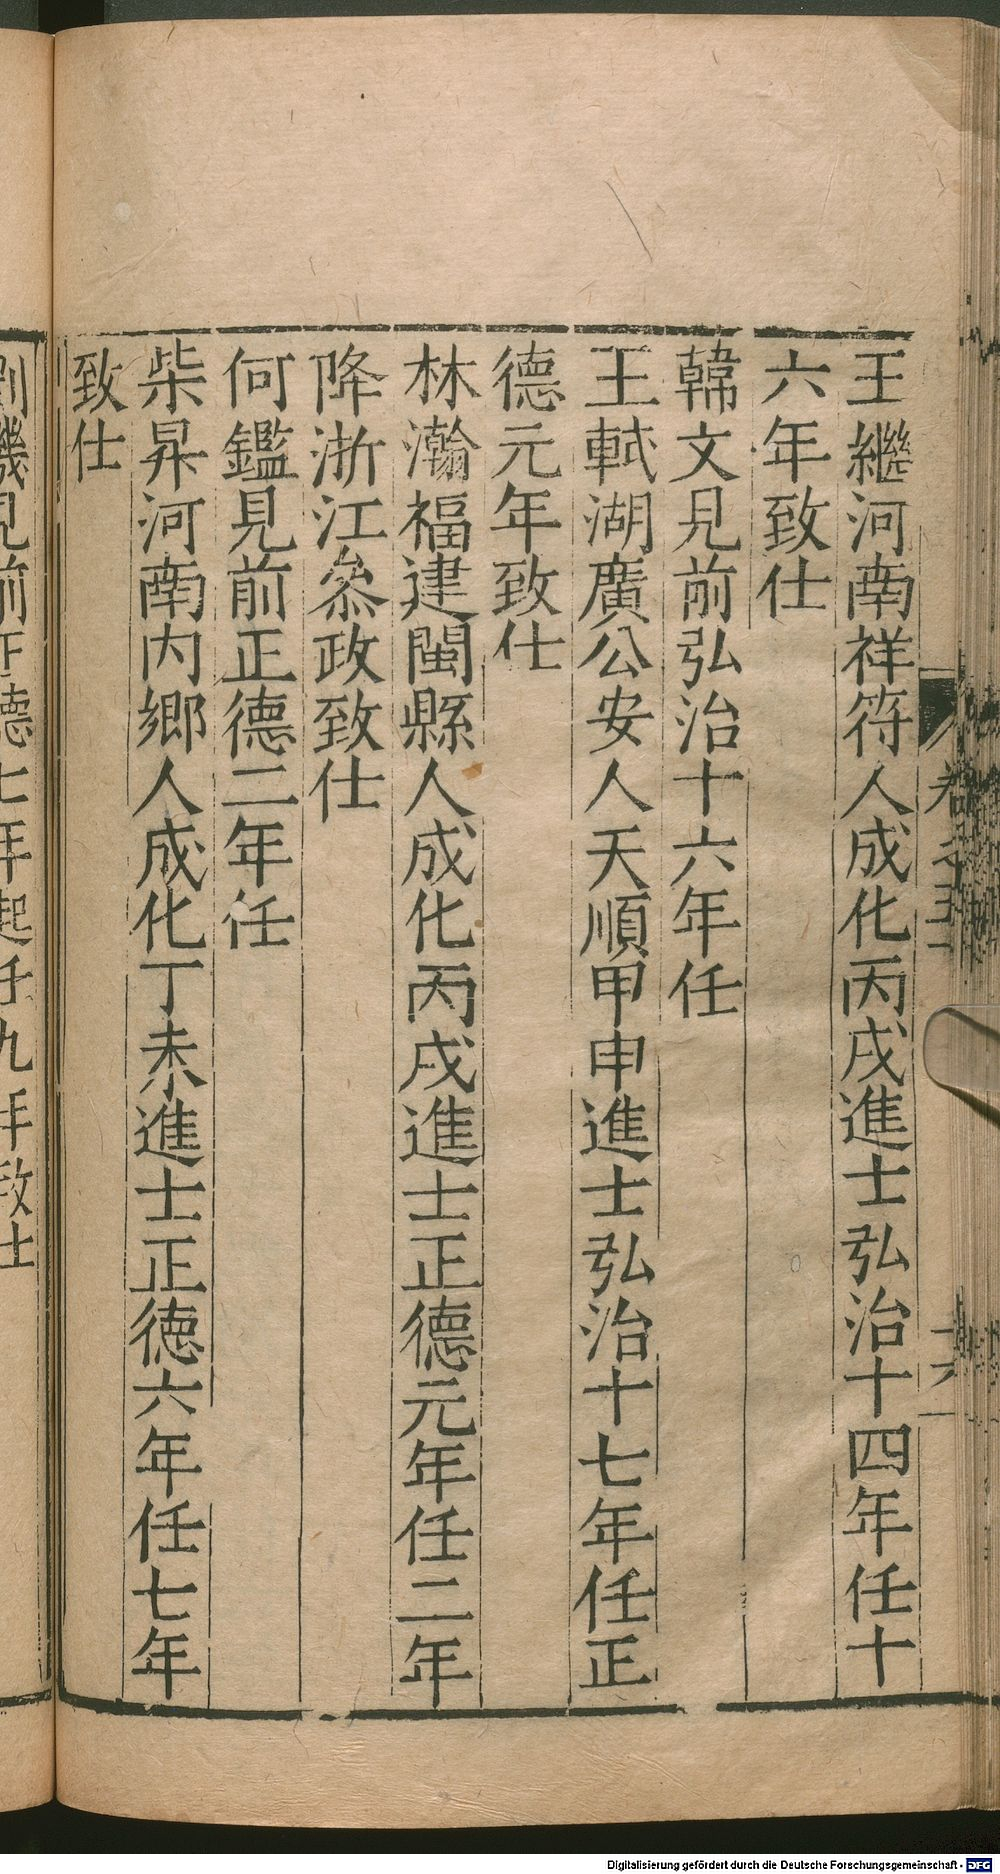 王繼河南祥符人成化丙戌進士弘治十四年任十
六年致仕
韓文見前弘治十六年任
王軾湖廣公安人天順甲申進士弘治十七年任正
德元年致仕
林瀚福建閩縣人成化丙戌進士正德元年任二年
降浙江叅政致仕
何鑑見前正德二年任
柴昇河南内鄉人成化丁未進士正德六年任七年
致仕
見前正德七年起任九年致仕
卷之五
Digitalisierung gefördert durch die Deutsche Forschungsgemeinschaft - DFG